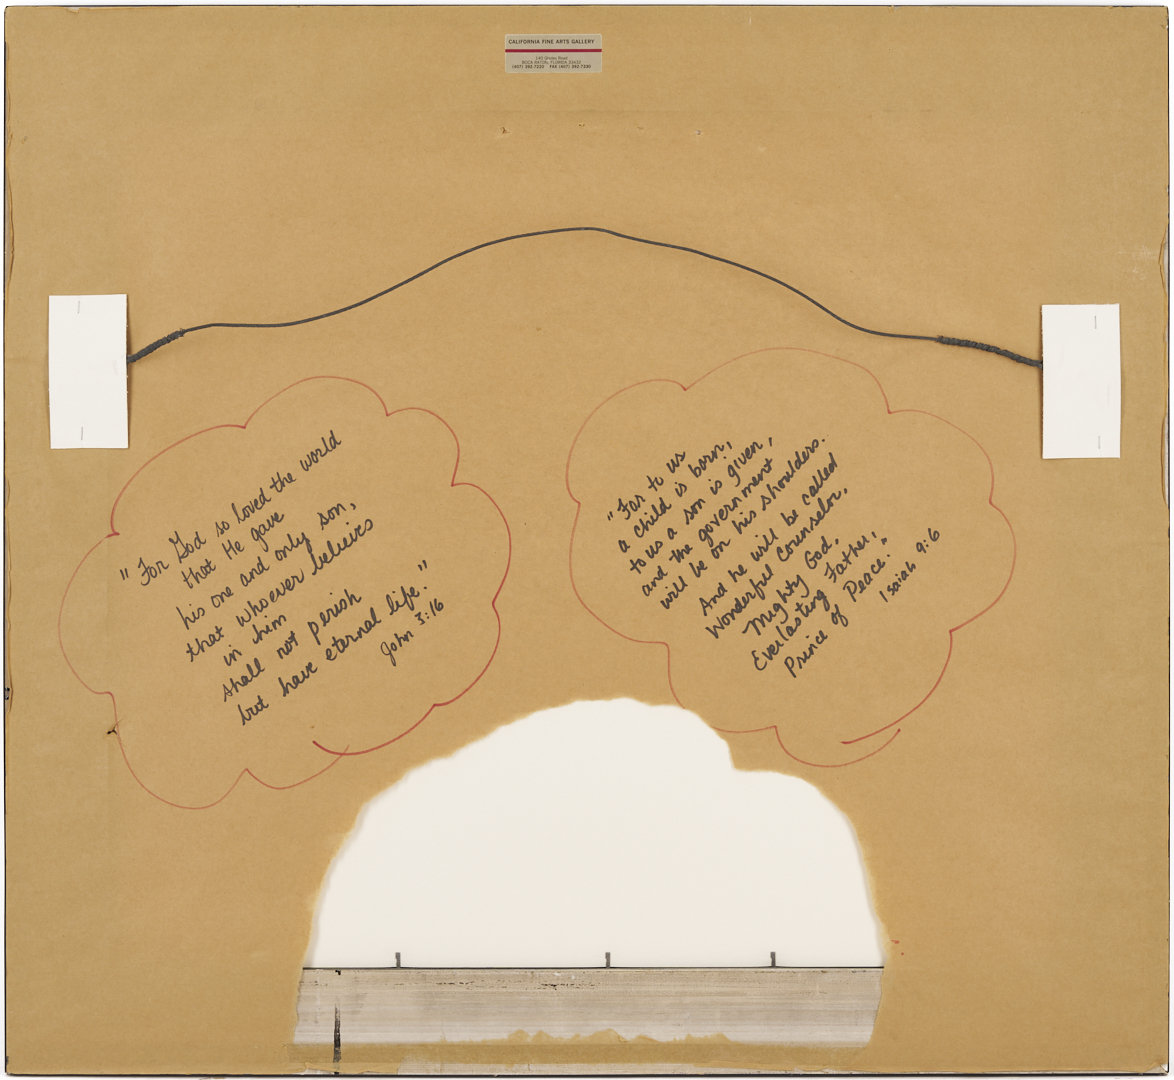 CALIFORNIA FINE ARTS GALLERY
BOCA RATON, FLORIDA
(407) 392-7220 FAX (407) 392-7330
"For God so loved the world
that He gave
his one and only son,
that whoever believes
in him
shall not perish
but have eternal life."
John 3:16
"For to us
a child is born,
to us a son is given,
and the government
will be on his shoulders.
And he will be called
Wonderful Counselor,
Mighty God,
Everlasting Father,
Prince of Peace."
Isaiah 9:6